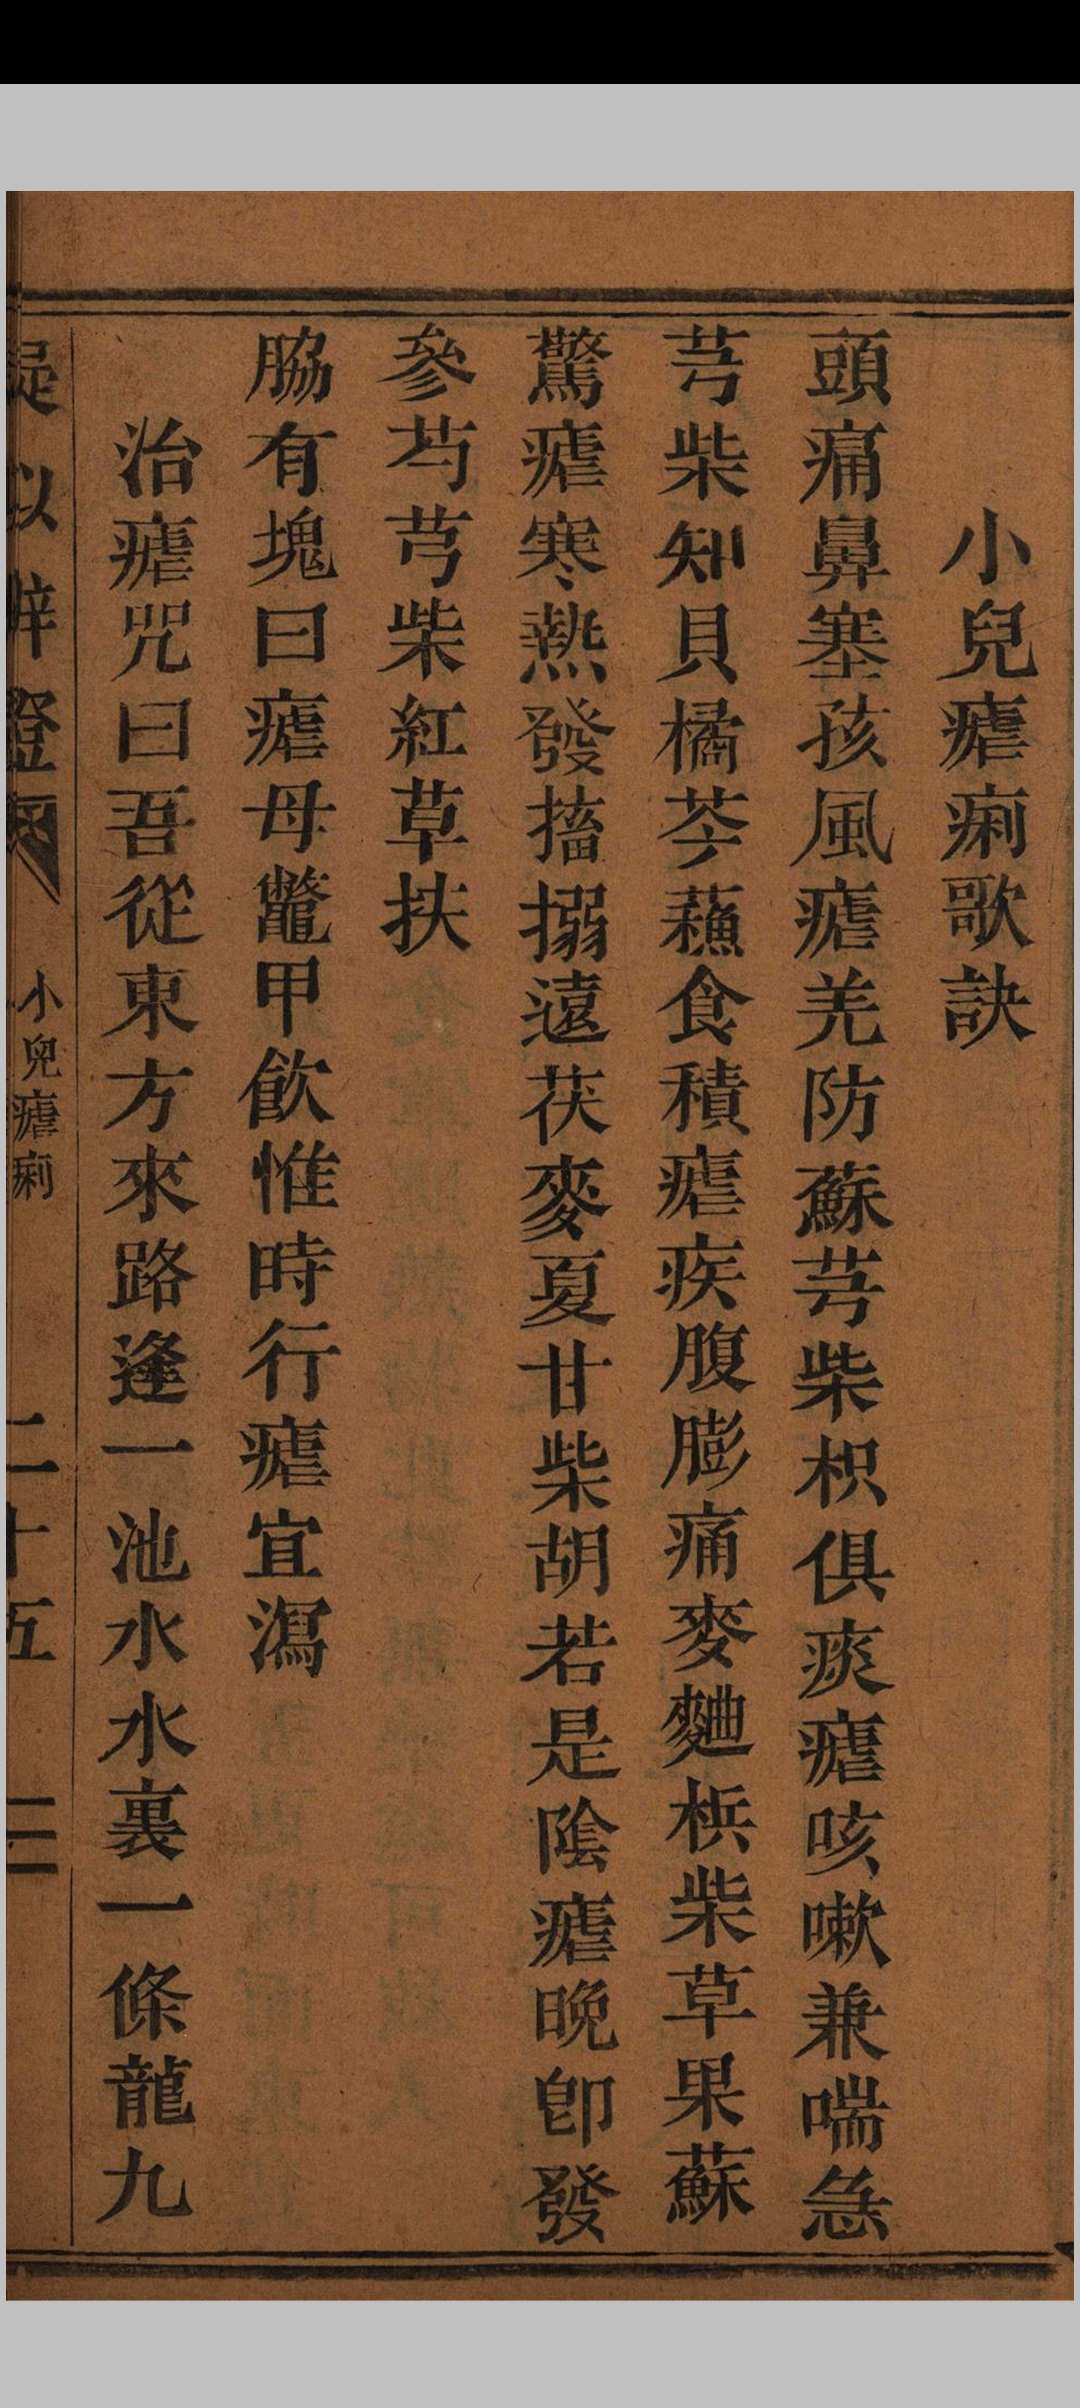 小兒瘧痢歌訣
頭痛鼻塞孩風瘧羌防蘇芎柴枳俱痰瘧咳嗽兼喘急
芎柴知貝橘芩蘓食積瘧疾腹膨痛麥麯梹柴草果蘇
驚瘧寒熱發搐搦遠茯麥夏甘柴胡若是陰瘧晚卽發
參芍芎柴紅草扶
脇有塊曰瘧母鼈甲飮惟時行瘧宜瀉
治瘧咒曰吾從東方來路逢一池水水裏一條龍九
小兒瘧痢
二十五